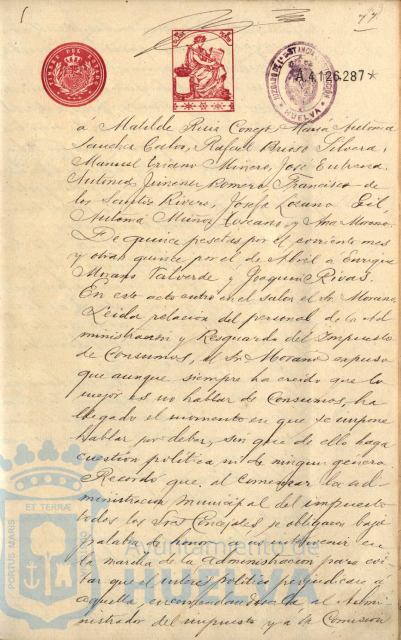 77
TIMBRE DEL ESTADO
JUZGADO DE 1ª INSTANCIA
HUELVA
A.4126.287*
á Matilde Ruiz Conejo, María Antonia
Sanchez Carlos, Rafael Brioso Silvera,
Manuel Oriano Miñero, José
Antonia Jimenez Romero, Francisco de
los Santos Rivera, Josefa Lozano Gil,
Antonia Muñoz y Ana Moreno.
De quince pesetas por el corriente mes
y otras quince por el de Abril a Enrique
Morano Valverde y Joaquin Rivas.
En este acto entró en el salon el Sr. Morano.
Leida relacion del personal de la Ad-
ministracion y Resguardo del Impuesto
de Consumos, el Sr. Morano expuso
que aunque siempre ha creido que lo
mejor es no hablar de Consumos, ha
llegado el momento en que se impone
hablar por deber, sin que de ello haga
cuestion politica ni de ningun género.
Recordó que al comenzar la ad-
ministracion municipal del impuesto
todos los Sres Concejales se obligaron bajo
palabra de honor a no intervenir en
la marcha de la Administracion para evi-
tar que el interés politico perjudicara a
aquella, encomendandosela al Admi-
nistrador del impuesto y a la Comision
PORTUS MARIS
ET TERRAE
Ayuntamiento de
HUELVA